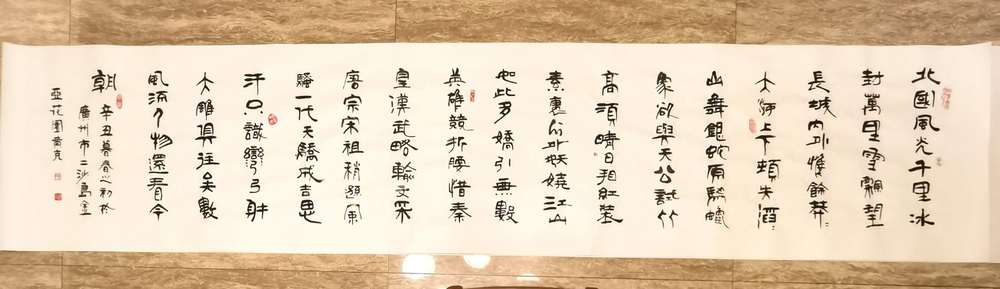 北國風光千里冰
封萬里雪飄望
長城內外惟餘莽〻
大河上下頓失滔〻
山舞銀蛇原馳蠟
象欲與天公試比
高須晴日看紅裝
素裹分外妖嬈江山
如此多嬌引無數
英雄競折腰惜秦
皇漢武略輸文采
唐宗宋祖稍遜風
騷一代天驕成吉思
汗只識彎弓射
大雕俱往矣數
風流人物還看今
朝
辛丑暮春之初於
廣州市二沙島金
亞花園黃克